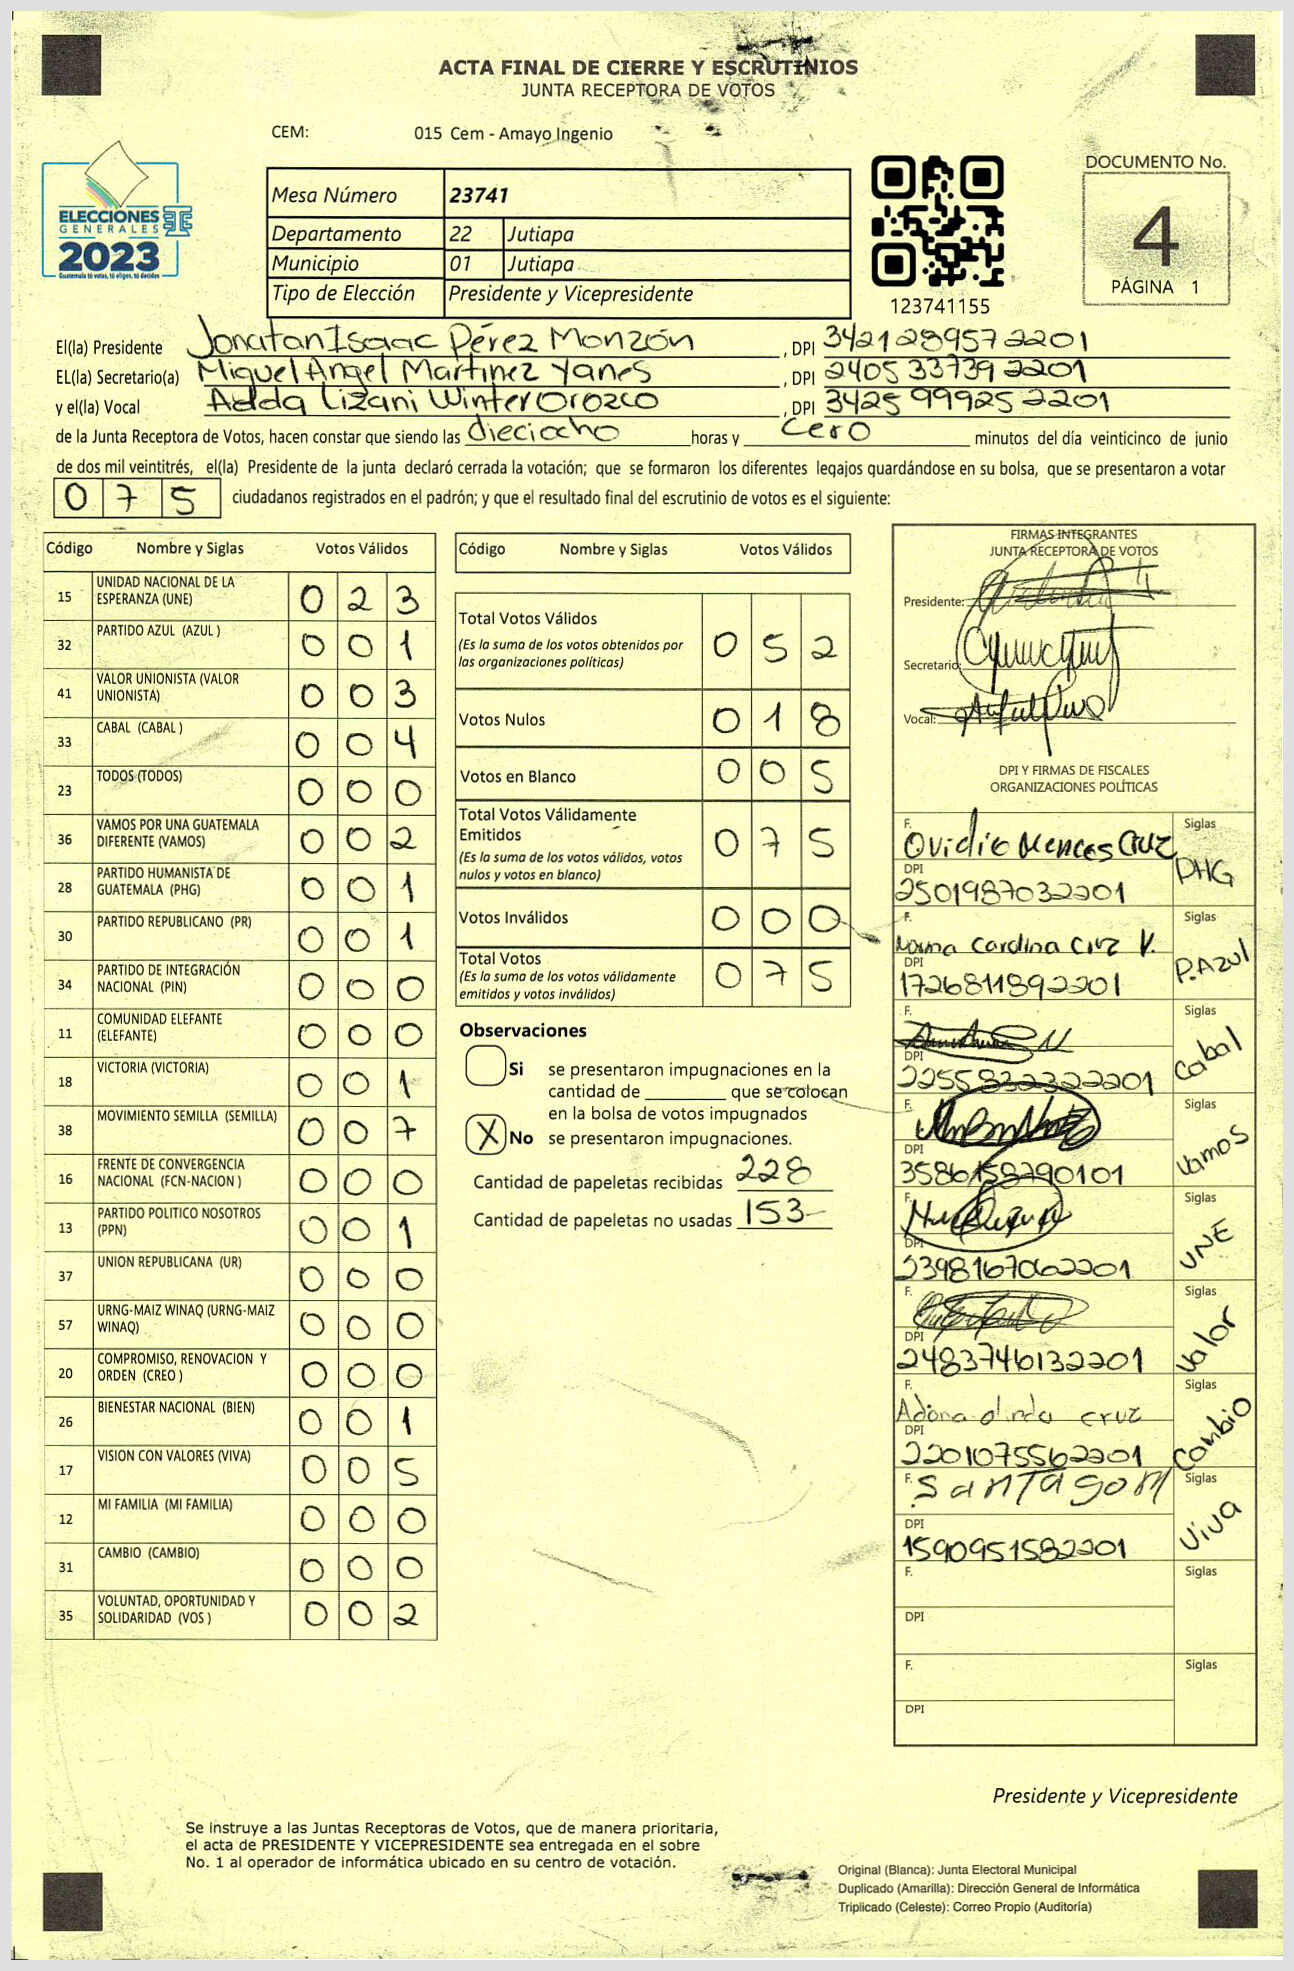 ACTA FINAL DE CIERRE Y ESCRUTINIOS
JUNTA RECEPTORA DE VOTOS
CEM: 015 Cem - Amayo Ingenio
ELECCIONES
GENERALES
2023
Guatemala tú votas, tú eliges, tú decides
Mesa Número 23741
Departamento 22 Jutiapa
Municipio 01 Jutiapa
Tipo de Elección Presidente y Vicepresidente
123741155
DOCUMENTO No.
4
PÁGINA 1
El(la) Presidente Jonatan Isaac Pérez Monzón, DPI 3421289572201
EL(la) Secretario(a) Miguel Angel Martinez Yanes, DPI 2405337392201
y el(la) Vocal Adda Lizani Winter Orozco, DPI 3425999252201
de la Junta Receptora de Votos, hacen constar que siendo las dieciocho horas y cero minutos del día veinticinco de junio
de dos mil veintitrés, el(la) Presidente de la junta declaró cerrada la votación; que se formaron los diferentes legajos guardándose en su bolsa, que se presentaron a votar
075 ciudadanos registrados en el padrón; y que el resultado final del escrutinio de votos es el siguiente:
Código Nombre y Siglas Votos Válidos
15 UNIDAD NACIONAL DE LA ESPERANZA (UNE) 023
32 PARTIDO AZUL (AZUL ) 001
41 VALOR UNIONISTA (VALOR UNIONISTA) 003
33 CABAL (CABAL ) 004
23 TODOS (TODOS) 000
36 VAMOS POR UNA GUATEMALA DIFERENTE (VAMOS) 002
28 PARTIDO HUMANISTA DE GUATEMALA (PHG) 001
30 PARTIDO REPUBLICANO (PR) 001
34 PARTIDO DE INTEGRACIÓN NACIONAL (PIN) 000
11 COMUNIDAD ELEFANTE (ELEFANTE) 000
18 VICTORIA (VICTORIA) 001
38 MOVIMIENTO SEMILLA (SEMILLA) 007
16 FRENTE DE CONVERGENCIA NACIONAL (FCN-NACION ) 000
13 PARTIDO POLITICO NOSOTROS (PPN) 001
37 UNION REPUBLICANA (UR) 000
57 URNG-MAIZ WINAQ (URNG-MAIZ WINAQ) 000
20 COMPROMISO, RENOVACION Y ORDEN (CREO ) 000
26 BIENESTAR NACIONAL (BIEN) 001
17 VISION CON VALORES (VIVA) 005
12 MI FAMILIA (MI FAMILIA) 000
31 CAMBIO (CAMBIO) 000
35 VOLUNTAD, OPORTUNIDAD Y SOLIDARIDAD (VOS ) 002
Código Nombre y Siglas Votos Válidos
Total Votos Válidos 052
(Es la suma de los votos obtenidos por
las organizaciones políticas)
Votos Nulos 018
Votos en Blanco 005
Total Votos Válidamente
Emitidos 075
(Es la suma de los votos válidos, votos
nulos y votos en blanco)
Votos Inválidos 000
Total Votos 075
(Es la suma de los votos válidamente
emitidos y votos inválidos)
Observaciones
Si se presentaron impugnaciones en la
cantidad de ________ que se colocan
en la bolsa de votos impugnados
X No se presentaron impugnaciones.
Cantidad de papeletas recibidas 228
Cantidad de papeletas no usadas 153
FIRMAS INTEGRANTES
JUNTA RECEPTORA DE VOTOS
Presidente:
Secretario:
Vocal:
DPI Y FIRMAS DE FISCALES
ORGANIZACIONES POLÍTICAS
F. Ovidio Mences Cruz Siglas PHG
DPI 2501987032201
F. Norma Cardina Cruz V. Siglas P.Azul
DPI 1726811892201
F. Siglas Cabal
DPI 2255832322201
F. Siglas Vamos
DPI 3586158290101
F. Siglas UNE
DPI 2398167062201
F. Siglas Valor
DPI 2483746132201
F. Cruz Siglas Cambio
DPI 2201075562201
F. Siglas Viva
DPI 1590951582201
F. Siglas
DPI
F. Siglas
DPI
Presidente y Vicepresidente
Se instruye a las Juntas Receptoras de Votos, que de manera prioritaria,
el acta de PRESIDENTE Y VICEPRESIDENTE sea entregada en el sobre
No. 1 al operador de informática ubicado en su centro de votación.
Original (Blanca): Junta Electoral Municipal
Duplicado (Amarilla): Dirección General de Informática
Triplicado (Celeste): Correo Propio (Auditoría)